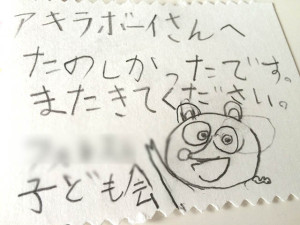 アキラボーイさんへ
たのしかったです。
またきてください。
子ども会